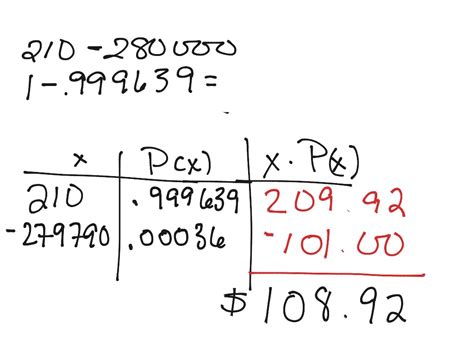 210 - 280000
1 - .999639 =
x P(x) x . P(x)
210 .999639 209.92
-279790 .00036 -101.00
$108.92